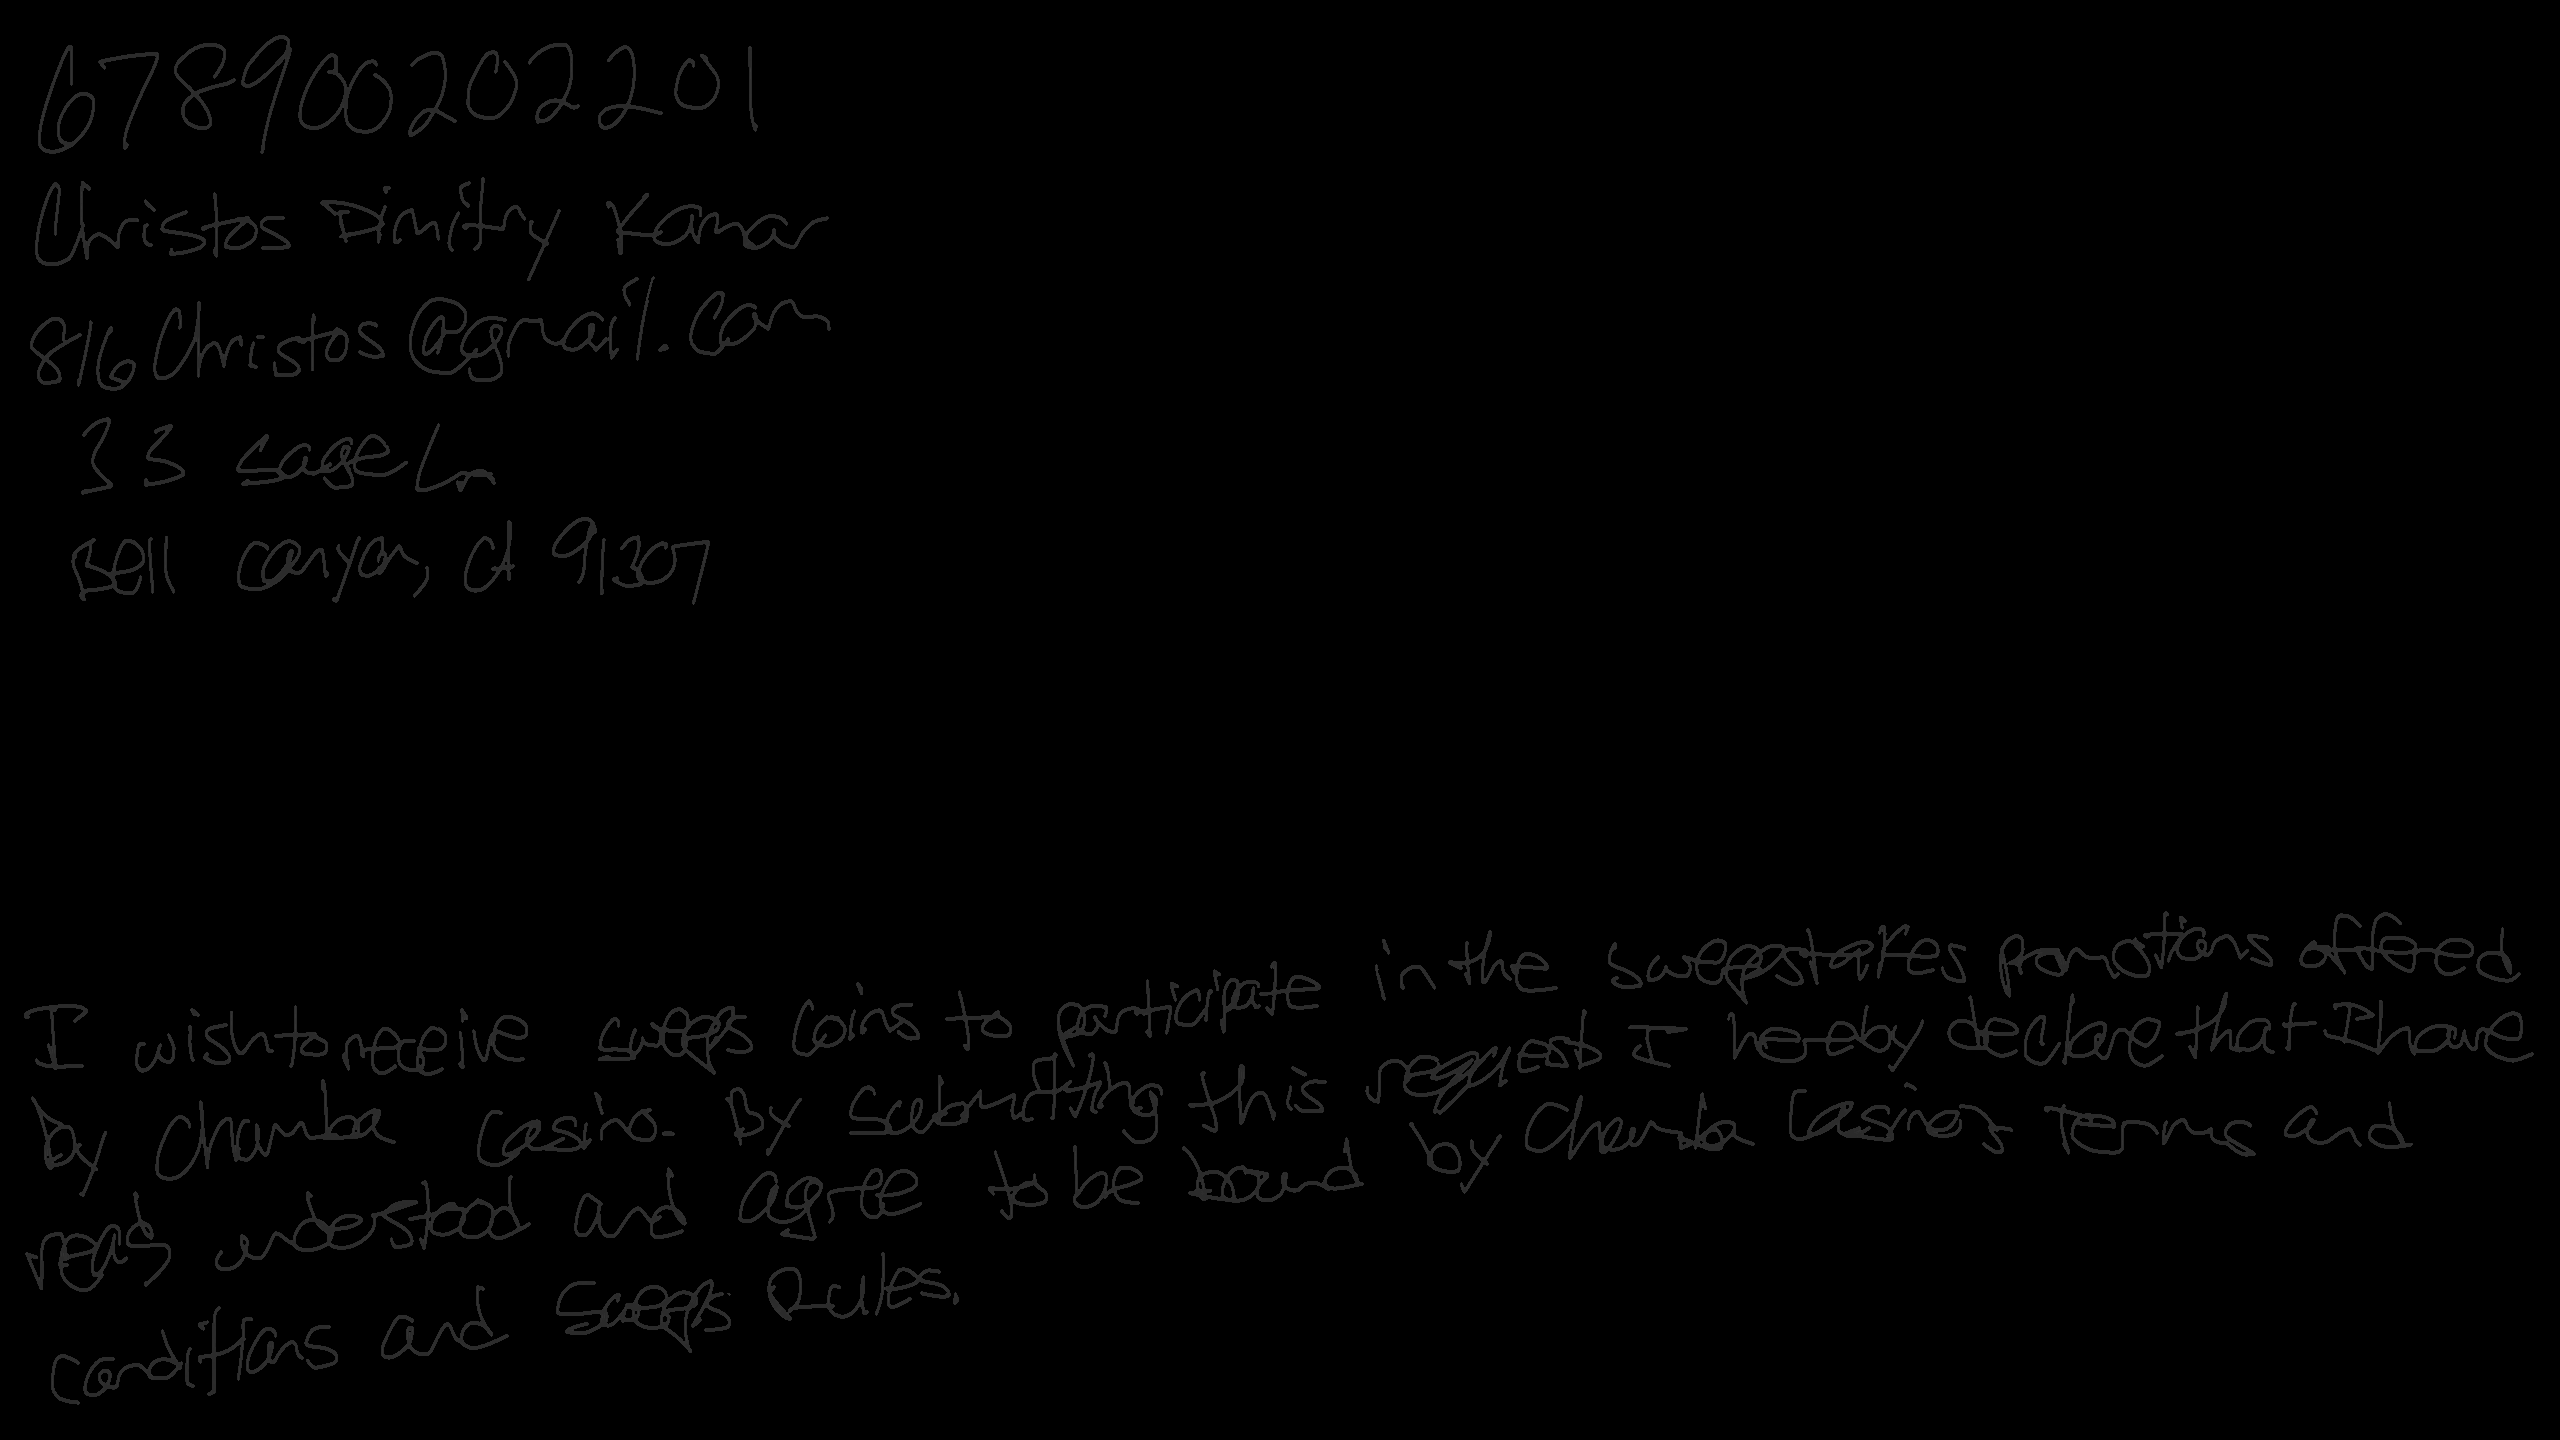 678900202201
Christos Dimitry Kamar
816Christos@gmail.com
33 sage Ln
Bell canyon, CA 91307
I wish to receive sweeps coins to participate in the sweepstakes promotions offered
by chamba casino. By submitting this request I hereby declare that I have
read understood and agree to be bound by Chamba Casino's Terms and
conditions and sweeps Rules.